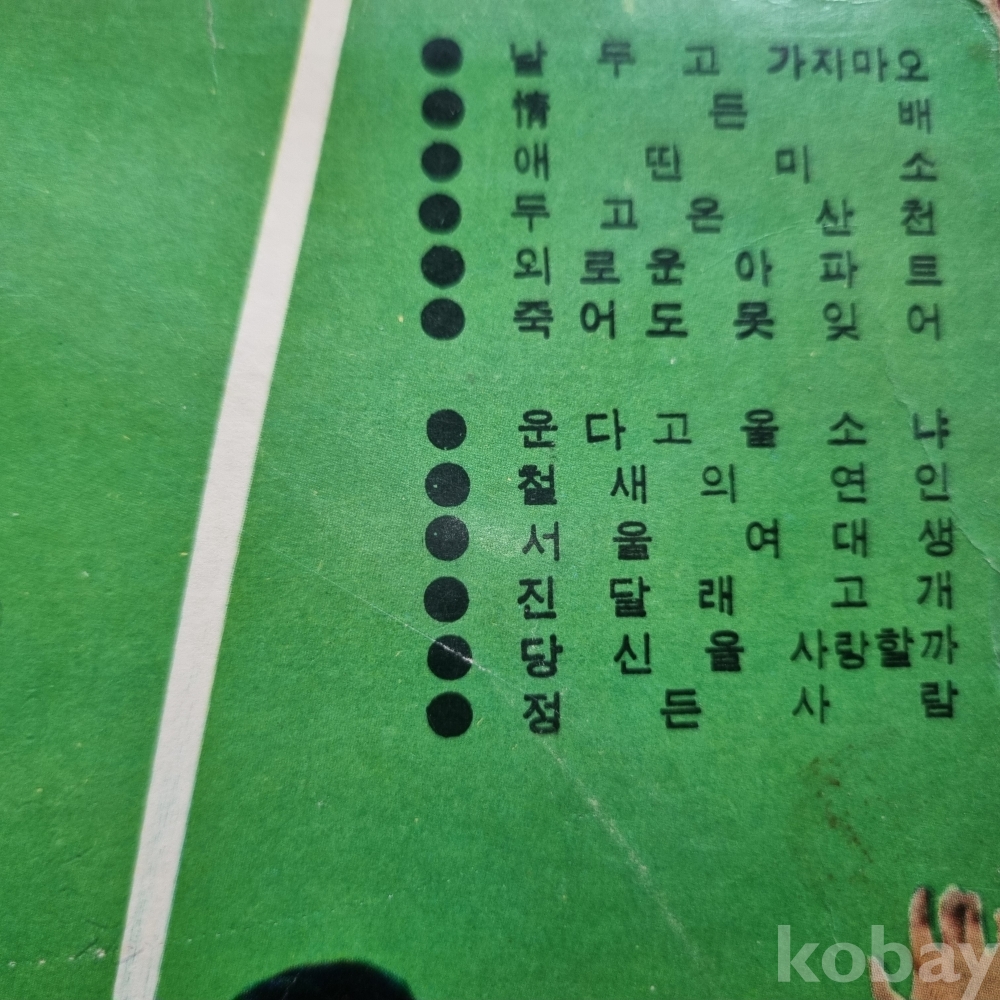 ● 날 두 고 가지마오
● 情 든 배
● 애 띤 미 소
● 두 고 온 산 천
● 외 로 운 아 파 트
● 죽 어 도 못 잊 어
● 운 다 고 올 소 냐
● 철 새 의 연 인
● 서 울 여 대 생
● 진 달 래 고 개
● 당 신 을 사랑할까
● 정 든 사 람
kobay